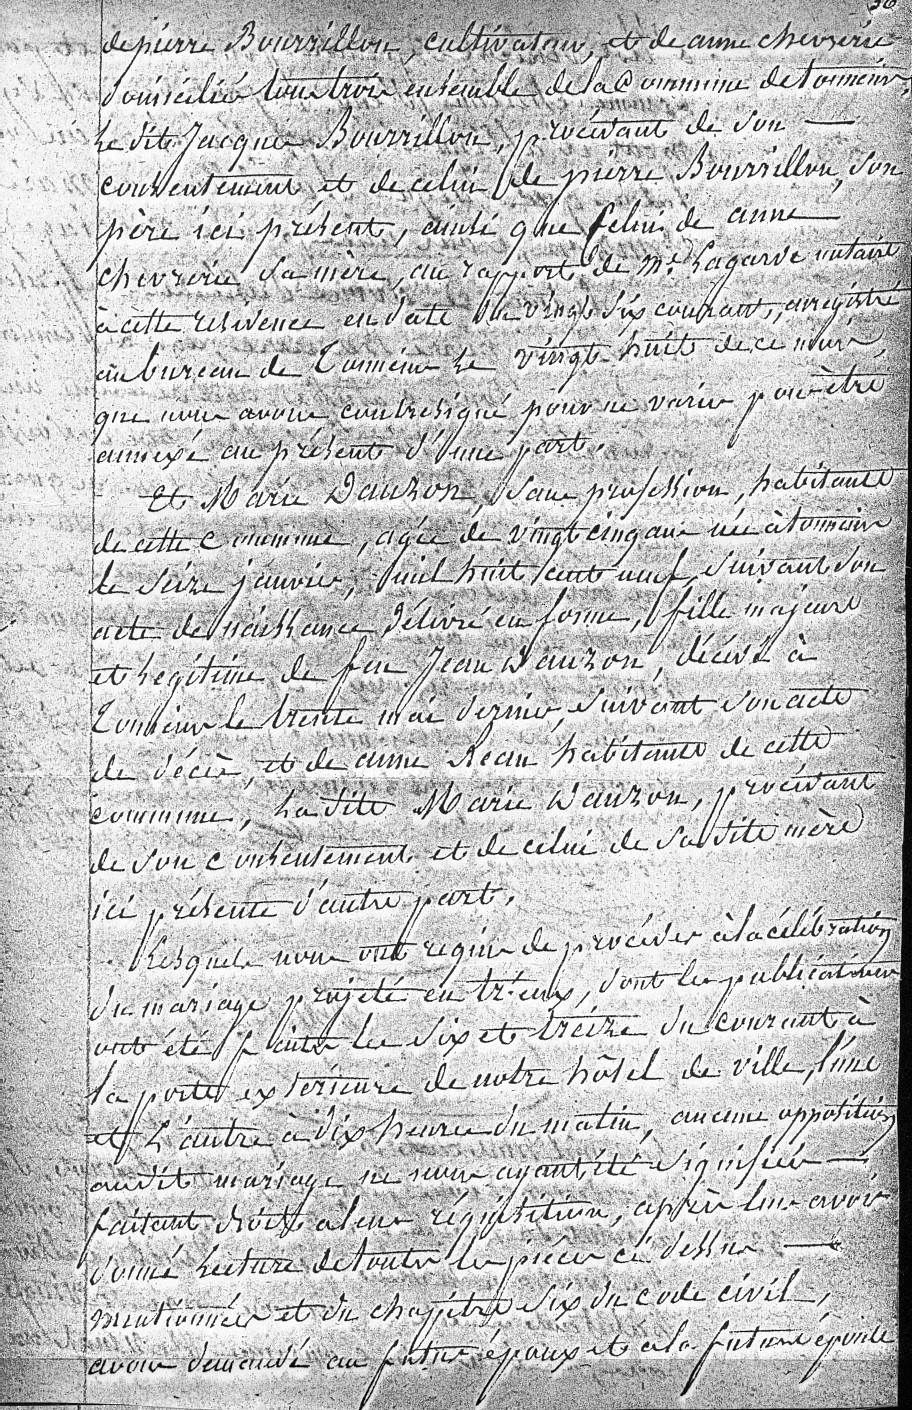 36
de pierre Bourrillon, cultivateur, et de anne chevrérie
domiciliés tous trois ensemble de la Commune de tonneins,
Le dit Jacques Bourrillon, procédant de son —
consentement et de celui de pierre Bourrillon, son
père ici présent, ainsi que celui de anne —
chevrérie sa mère, au rapport de Me. Lagarde notaire
à cette résidence en date du vingt six courant, enregistré
au bureau de Tonneins le vingt huit de ce mois,
que nous avons contresigné pour ne varier pour être
annexé au présent d'une part.
Et Marie Dauzon, sans profession, habitante
de cette Commune, agée de vingt cinq ans née à tonneins
le seize janvier, mil huit cent neuf, suivant son
acte de naissance délivré en forme, fille majeure
et légitime de feu Jean Dauzon, décédé à
Tonneins le trente mai dernier, suivant son acte
de décès, et de anne Rean habitante de cette
commune, La dite Marie Dauzon, procédant
de son consentement et de celui de sa dite mère
ici présente d'autre part.
Lesquels nous ont requis de procéder à la célébration
du mariage projeté entr'eux, dont les publications
ont été faites les six et treize du courant à
la porte extérieure de notre hôtel de ville, l'une
et L'autre à dix heures du matin, aucune opposition
audit mariage ne nous ayant été signifiée —
faisant droit à leur réquisition, après leur avoir
donné Lecture de toutes les pièces ci dessus —
mentionnées et du chapitre six du code civil,
avons demandé au futur époux et à la future épouse